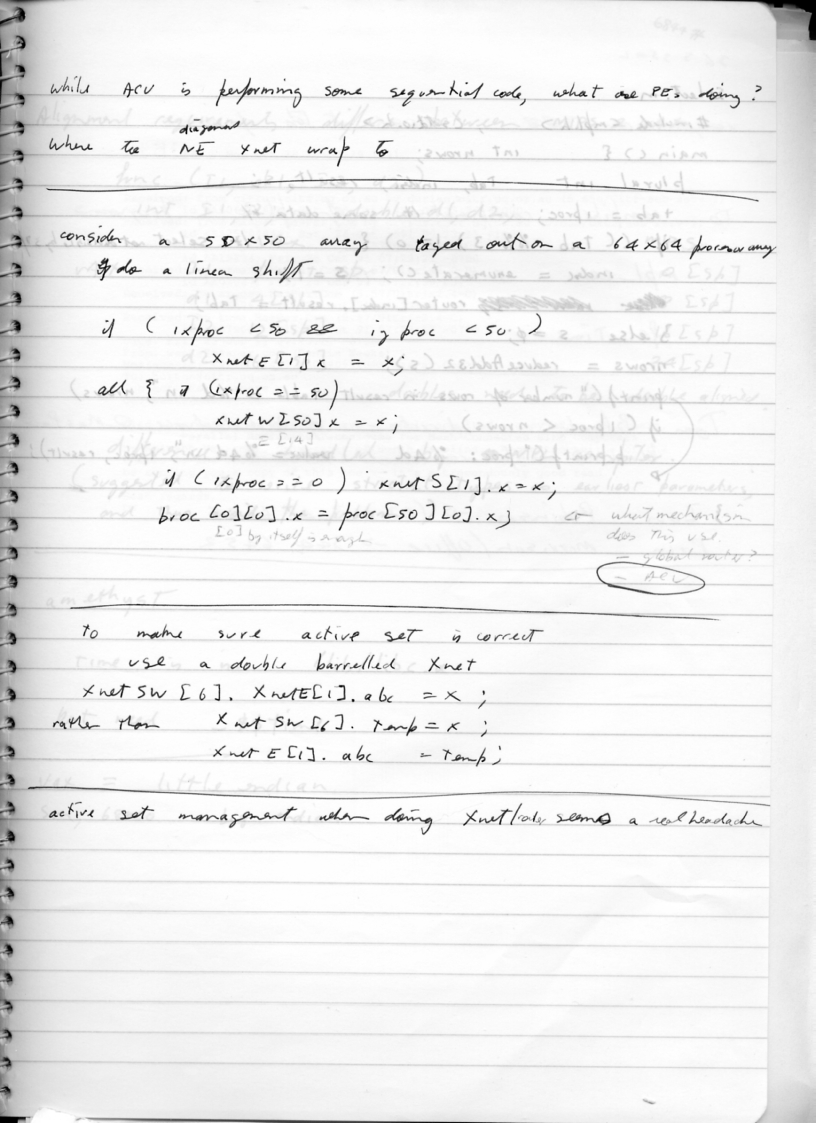 while ACU is performing some sequential code, what are PEs doing?
diagonal
Where the NE Xnet wrap to
consider a 50 x 50 array layed out on a 64x64 processor array
do a linear shift
if ( ixproc < 50 && iyproc < 50 )
XnetE[1] x = x;
all { if (ixproc == 50)
xnetW[50] x = x;
E [14]
if (ixproc == 0) xnetS[1].x = x;
proc[0][0].x = proc[50][0].x;
[0] by itself is enough
← what mechanism
does this use.
– global router?
– ACU
to make sure active set is correct
use a double barrelled Xnet
XnetSW[6]. XnetE[1].abc = x ;
rather than XnetSW[6]. temp = x ;
XnetE[1]. abc = temp;
active set management when doing Xnet/router seems a real headache